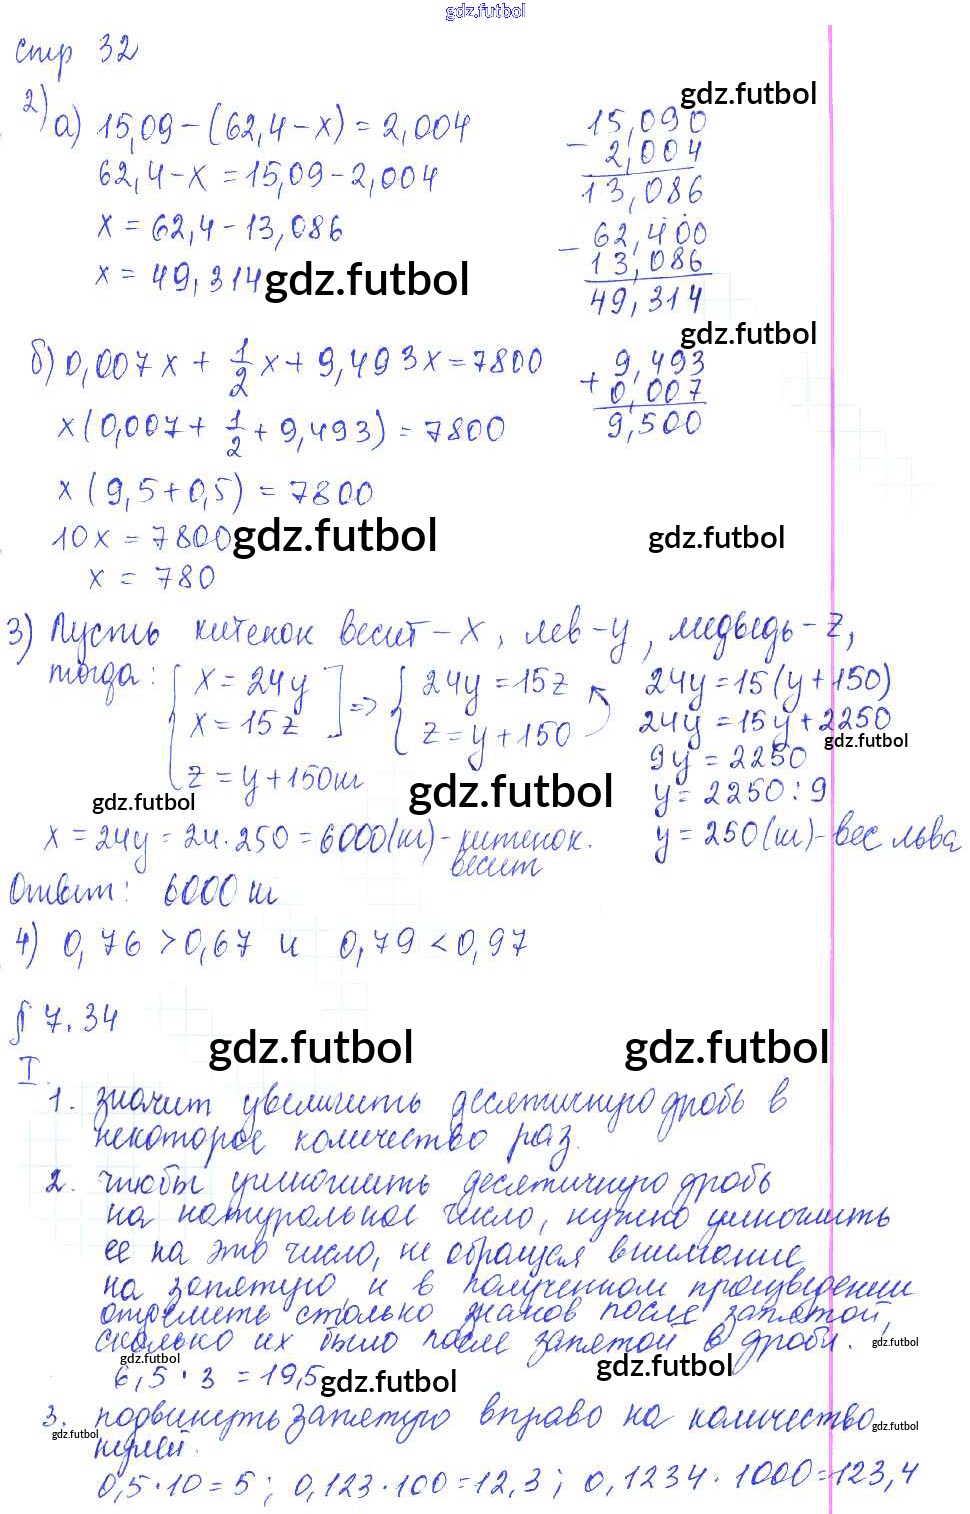 gdz.futbol
стр 32
2) а) 15,09 - (62,4 - x) = 2,004
62,4 - x = 15,09 - 2,004
x = 62,4 - 13,086
x = 49,314 gdz.futbol
gdz.futbol
15,090
- 2,004
13,086
62,400
- 13,086
49,314
gdz.futbol
б) 0,007x + 1/2 x + 9,493x = 7800
x(0,007 + 1/2 + 9,493) = 7800
x(9,5 + 0,5) = 7800
10x = 7800 gdz.futbol
x = 780
9,493
+ 0,007
9,500
gdz.futbol
3) Пусть китенок весит - x, лев - y, медведь - z,
тогда: { x = 24y
x = 15z ] =>
z = y + 150 кг
{ 24y = 15z
z = y + 150
24y = 15(y + 150)
24y = 15y + 2250
gdz.futbol
9y = 2250
y = 2250 : 9
y = 250 (кг) - вес льва
gdz.futbol
gdz.futbol
x = 24y = 24 · 250 = 6000 (кг) - китенок.
весит
Ответ: 6000 кг
4) 0,76 > 0,67 и 0,79 < 0,97
§ 7.34
gdz.futbol gdz.futbol
I.
1. значит увеличить десятичную дробь в
некоторое количество раз.
2. чтобы умножить десятичную дробь
на натуральное число, нужно умножить
ее на это число, не обращая внимание
на запятую, и в полученном произведении
отделить столько знаков после запятой,
сколько их было после запятой в дроби.
gdz.futbol
gdz.futbol
gdz.futbol
6,5 · 3 = 19,5 gdz.futbol
3. подвинуть запятую вправо на количество
нулей.
gdz.futbol
gdz.futbol
0,5 · 10 = 5; 0,123 · 100 = 12,3; 0,1234 · 1000 = 123,4